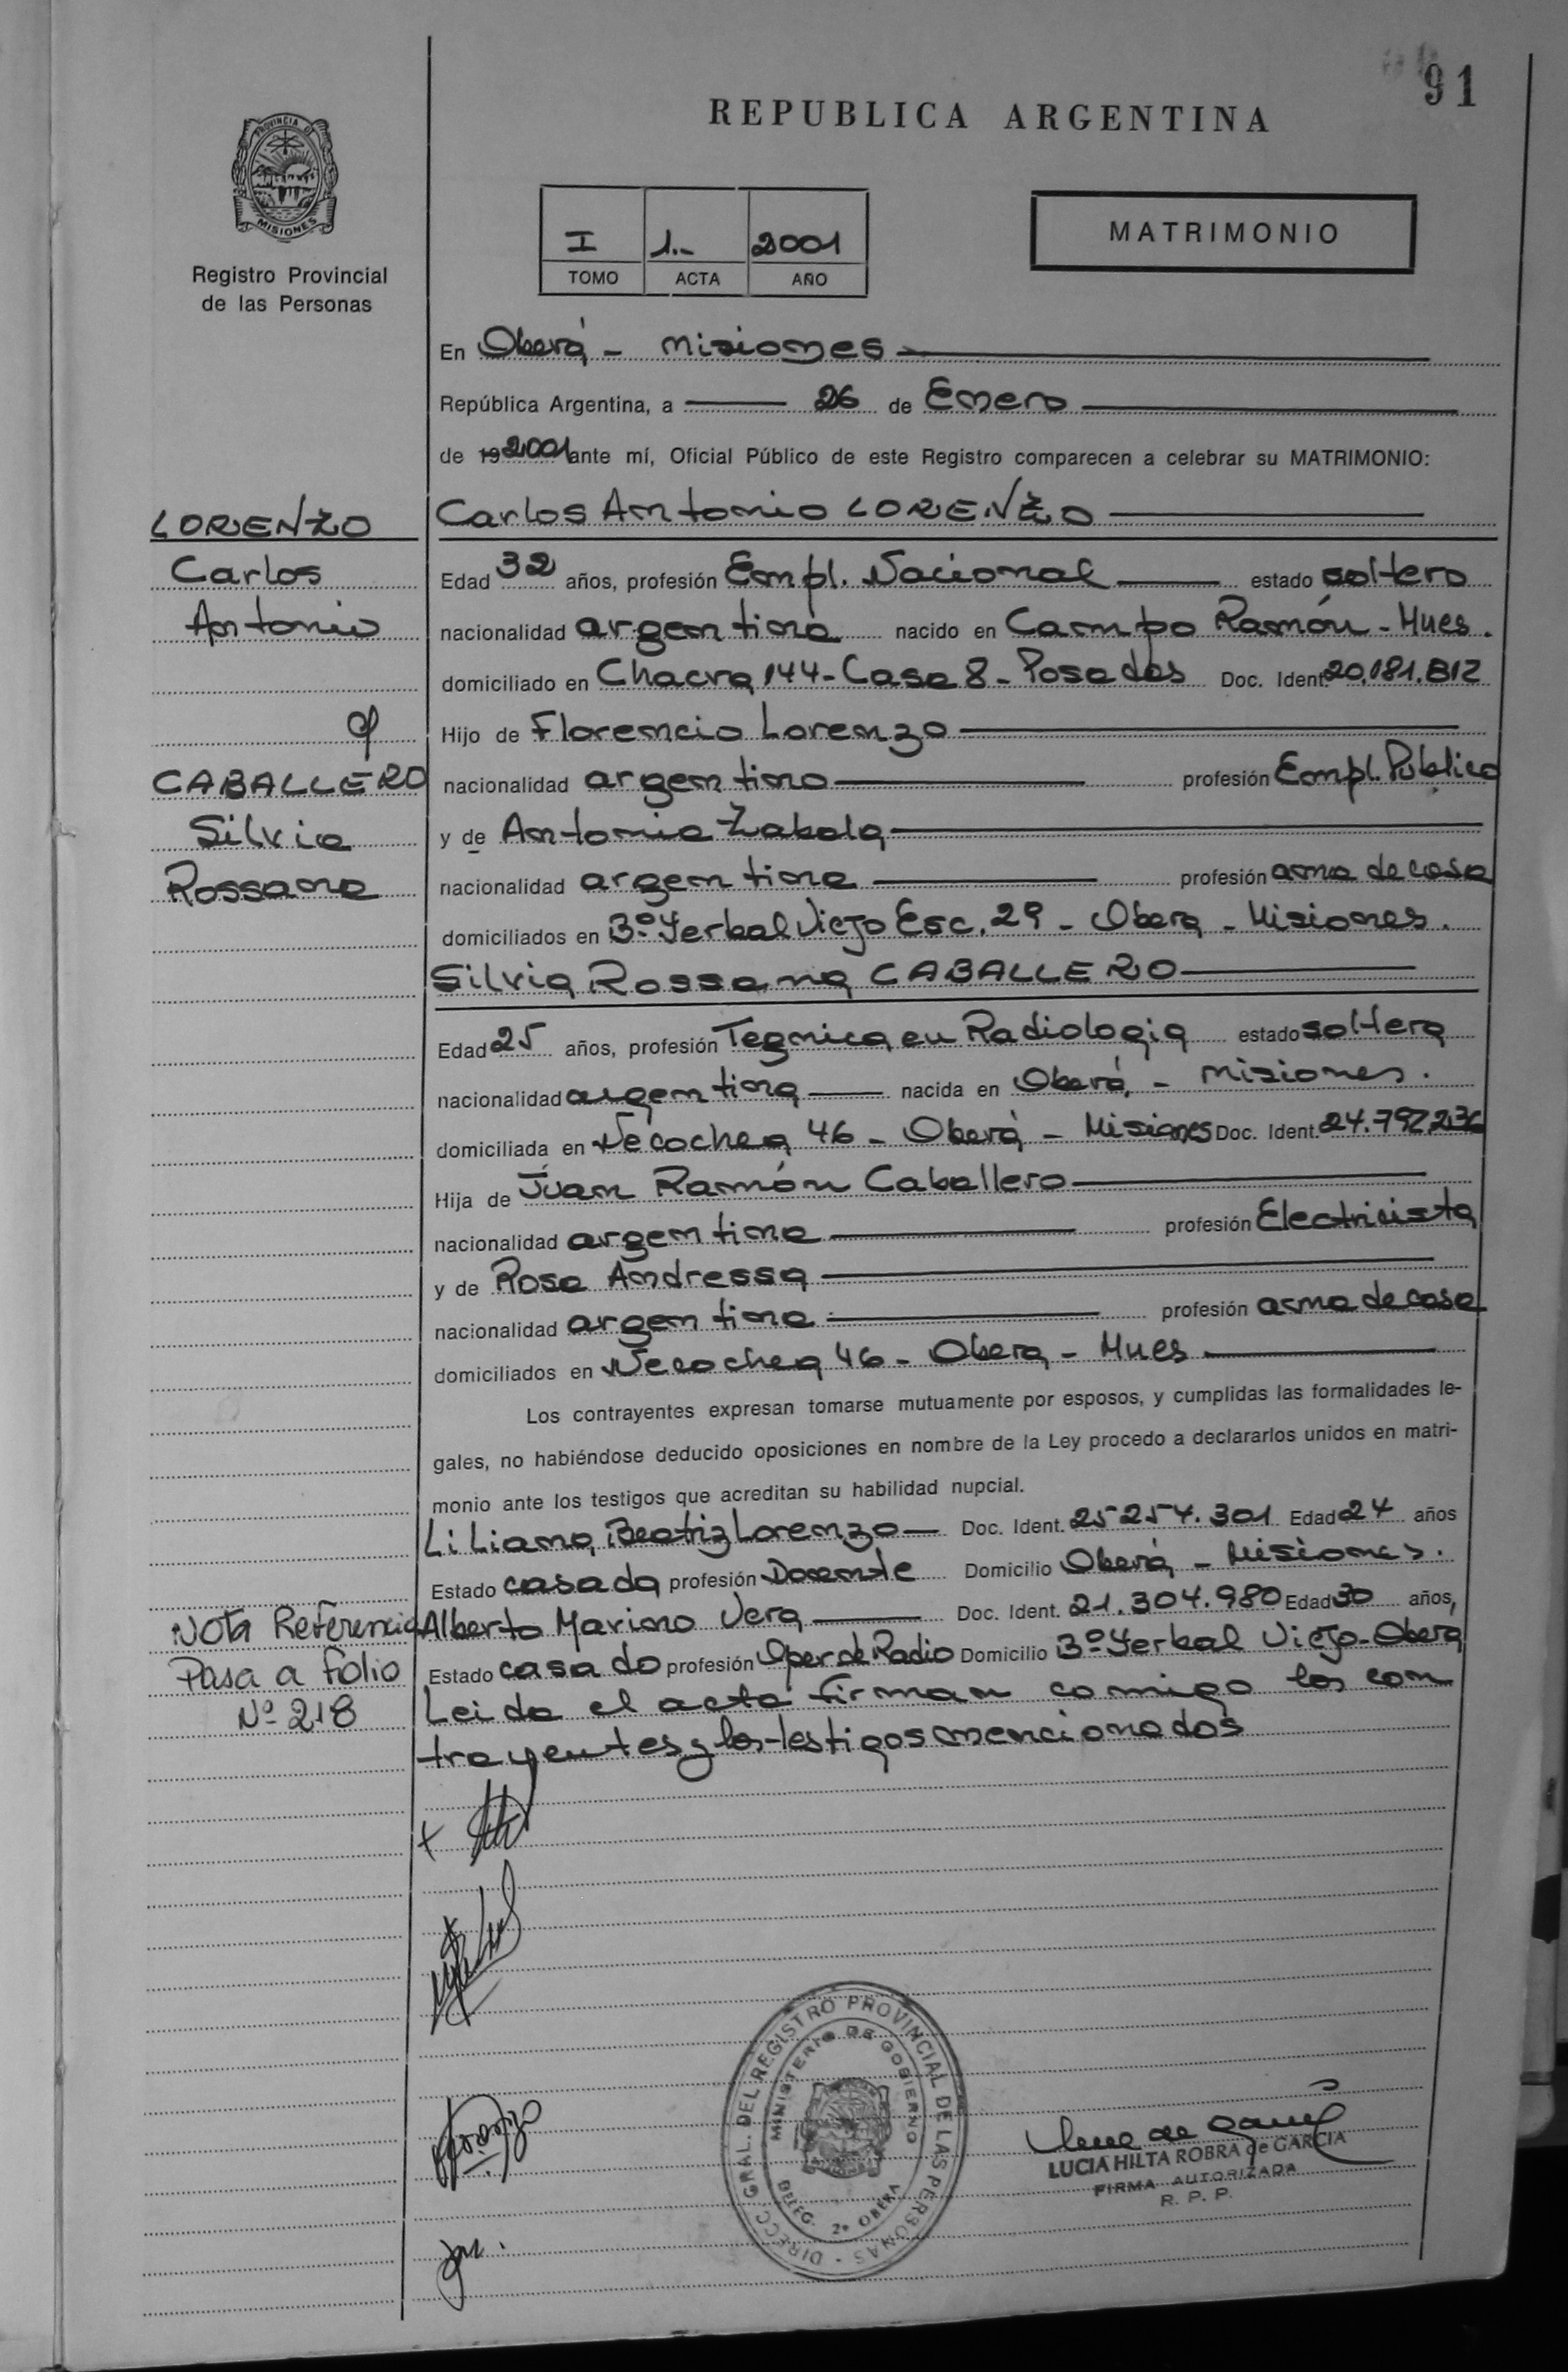 91
REPUBLICA ARGENTINA
PROVINCIA DE
MISIONES
Registro Provincial
de las Personas
I 1.- 2001
TOMO ACTA AÑO
MATRIMONIO
En Oberá - Misiones
República Argentina, a 26 de Enero
de 19 2001 ante mí, Oficial Público de este Registro comparecen a celebrar su MATRIMONIO:
LORENZO
Carlos
Antonio
c/
CABALLERO
Silvia
Rossana
Carlos Antonio LORENZO
Edad 32 años, profesión Empl. Nacional estado soltero
nacionalidad argentina nacido en Campo Ramón - Mnes.
domiciliado en Chacra 144 - Casa 8 - Posadas Doc. Ident. 20.181.812
Hijo de Florencio Lorenzo
nacionalidad argentino profesión Empl. Público
y de Antonia Zabala
nacionalidad argentina profesión ama de casa
domiciliados en Bº Yerbal Viejo Esc. 29 - Obera - Misiones.
Silvia Rossana CABALLERO
Edad 25 años, profesión Tegnica en Radiologia estado soltera
nacionalidad argentina nacida en Oberá, - Misiones.
domiciliada en Necochea 46 - Oberá - Misiones Doc. Ident. 24.792.236
Hija de Juan Ramón Caballero
nacionalidad argentina profesión Electricista
y de Rosa Andressa
nacionalidad argentina profesión ama de casa
domiciliados en Necochea 46 - Obera - Mnes
Los contrayentes expresan tomarse mutuamente por esposos, y cumplidas las formalidades le-
gales, no habiéndose deducido oposiciones en nombre de la Ley procedo a declararlos unidos en matri-
monio ante los testigos que acreditan su habilidad nupcial.
Liliana Beatriz Lorenzo Doc. Ident. 25254.301 Edad 24 años
Estado casada profesión Docente Domicilio Oberá - Misiones.
Alberto Marino Vera Doc. Ident. 21.304.980 Edad 30 años,
Estado casado profesión Oper de Radio Domicilio Bº Yerbal Viejo - Obera
Leida el acta firman comigo los con
trayentes y los testigos mencionados
Nota Referencia
Pasa a folio
Nº 218
DIRECC. GRAL. DEL REGISTRO PROVINCIAL DE LAS PERSONAS
MINISTERIO DE GOBIERNO
DELEG. 2º OBERA
LUCIA HILTA ROBRA de GARCIA
FIRMA AUTORIZADA
R. P. P.